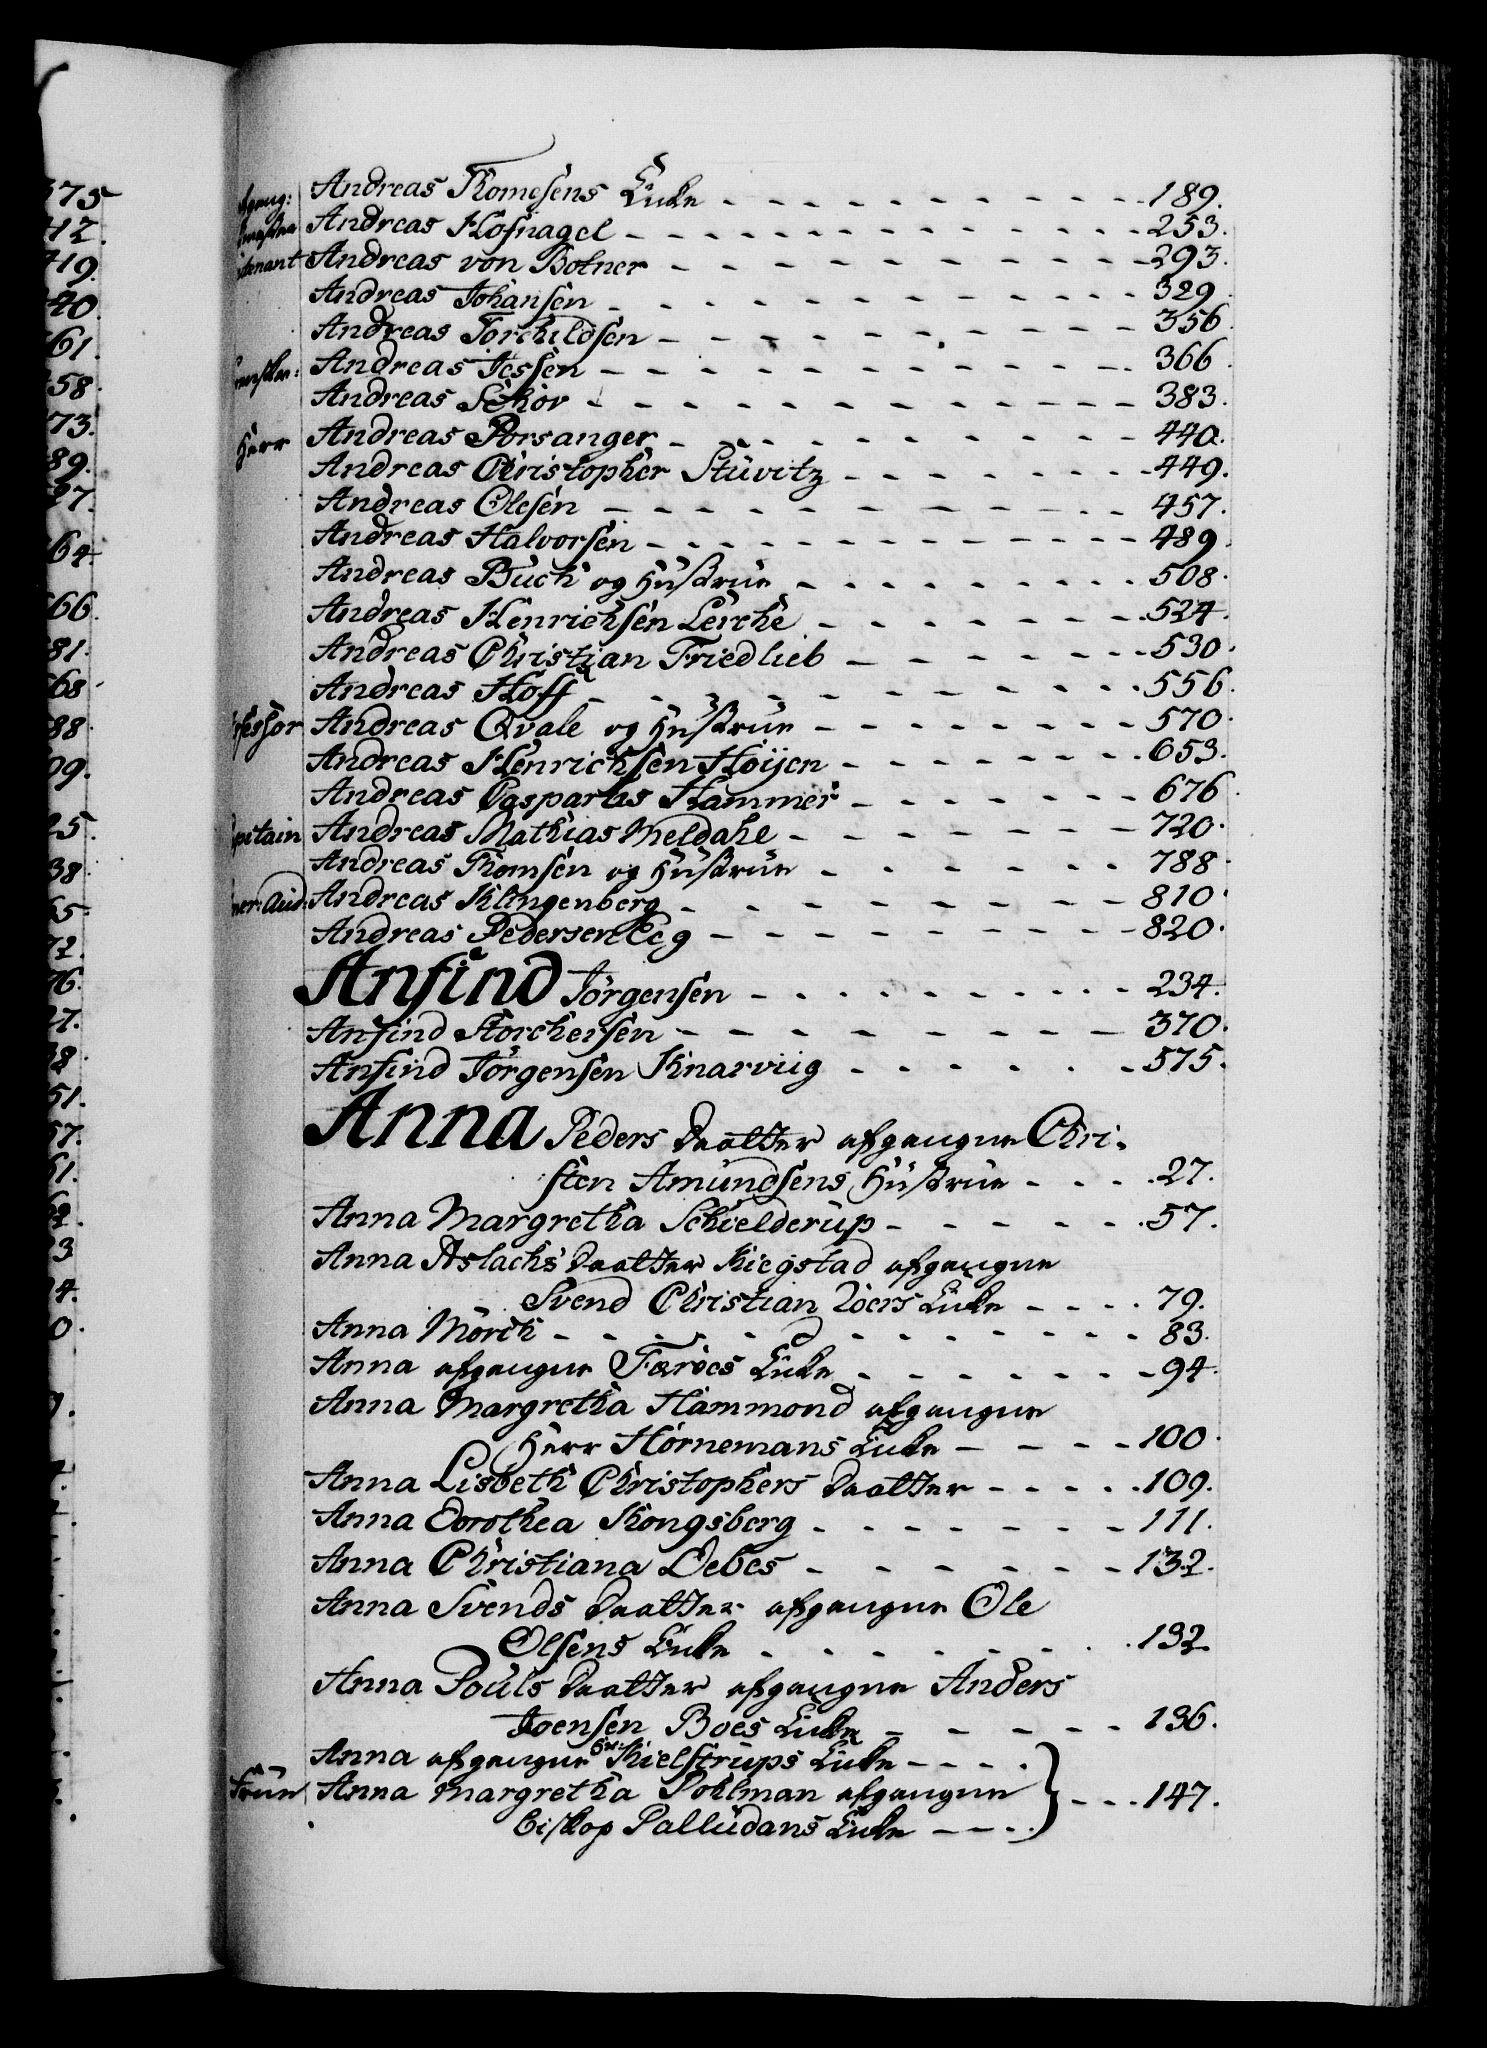 Andreas Thomesens Encke 189.
Andreas Hofnagel 253.
Andreas von Botner 293.
Andreas Johansen 329
Andreas Torchildsen 356
Andreas Jessen 366
Andreas Schor 383.
Herr Andreas Porsanger 440.
Andreas Christopher Stüvitz 449.
Andreas Olesen 457.
Andreas Halvorsen 489
Andreas Buch og Hustrue 508.
Andreas Henrichsen Lerche 524.
Andreas Christian Friedlieb 530.
Andreas Hoff 556.
Andreas Qvale og Hustrue 570.
Andreas Henrichsen Höijen 653.
Andreas Caspar Hammer 676
Andreas Mathias Meldahl 720.
Andreas Thomsen og Hustrue 788.
Andreas Klingenberg 810.
Andreas Pedersen Eeg 820.
Anfind Jörgensen 234.
Anfind Storchersen 370.
Anfind Jörgensen Knarviig 575.
Anna Peders Daatter afgangne Chri-
sten Amundsens Hustrue 27.
Anna Margretha Schielderup 57.
Anna Aslachs Daatter Kiegstad afgangne
Svend Christian Encke 79.
Anna Mörch 83.
Anna afgangne Færöes Encke 94.
Anna Margretha Hammond afgangne
Herr Hornemans Encke 100.
Anna Lisbeth Christophers Daatter 109.
Anna Dorothea Kongsberg 111.
Anna Christiana Debes 132.
Anna Svends Daatter afgangne Ole
Olsens Encke 132
Anna Pouls Daatter afgangne Anders
Joensen Boes Encke 136.
Anna afgangne Hr: Kielstrups Encke
Frue Anna Margretha Pohlman afgangne 147.
Biskop Palludans Encke